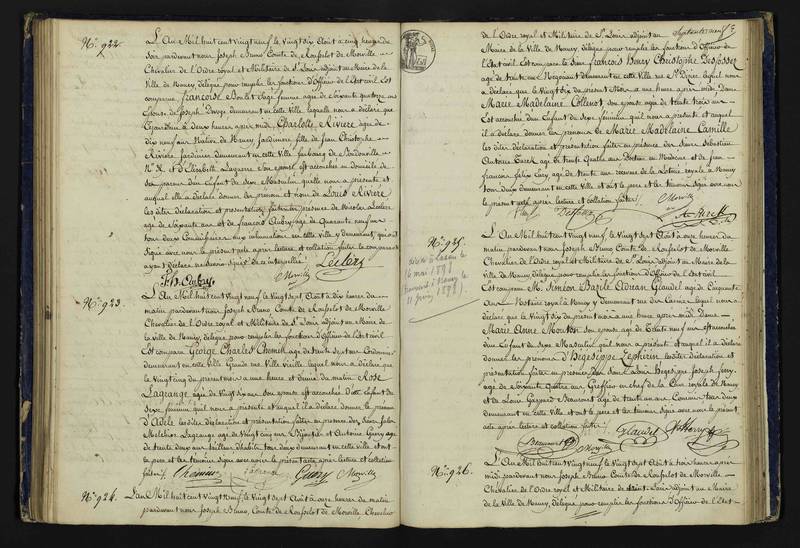 N.° 922.
L'An Mil huit cent vingt neuf le vingt six Août à cinq heures du
soir pardevant nous Joseph Bruno Comte de Ronfelot de Morville
Chevalier de l'Ordre royal et Militaire de S.t Louis adjoint au Maire de la
Ville de Nancy, délégué pour remplir les fonctions d'Officier de l'Etat civil Est
comparue françoise femme agée de soixante quatorze ans
Epouse de Joseph demeurant en cette Ville laquelle nous a déclaré que
aujourd'hui à deux heures après midi, Charlotte Riviere agée de
dix neuf ans Native de Nancy Jardiniere fille de Jean Christophe
Riviere Jardinier demeurant en cette Ville faubourg de Boudonville
N.° et d'Elisabeth Lagarre son épouse est accouchée au domicile de
ses pere et mere d'un Enfant du sexe Masculin qu'elle nous a présenté et
auquel elle a déclaré donner les prénom et nom de Louis Riviere
les dites déclaration et présentation faites en présence de Nicolas Leclerc
agé de soixante ans et de françois Aubry agé de Quarante neuf ans
tous deux demeurant en cette ville, qui ont
signé avec nous le présent acte après lecture et collation faites la comparante
ayant déclaré ne savoir signer de ce interpellée
Leclerc
Morville
Aubry
N.° 923.
L'An Mil huit cent Vingt neuf, le Vingt sept Août à dix heures du
matin pardevant nous Joseph Bruno Comte de Ronfelot de Morville
Chevalier de l'Ordre royal et Militaire de S.t Louis adjoint au Maire de
la Ville de Nancy, délégué pour remplir les fonctions d'Officier de l'Etat civil
Est comparu George Charles Chemin agé de trente sept ans Cordonnier
demeurant en cette Ville Grande rue Ville Vieille, lequel nous a déclaré que
le Vingt cinq du présent mois à une heure et demie du matin Rose
Lagrange agée de Vingt six ans son épouse est accouchée d'un enfant du
Sexe féminin qu'il nous a présenté et auquel il a déclaré donner le prénom
d'Adèle les dites déclaration et présentation faites en présence des Sieurs
Melchior Lagrange agé de vingt cinq ans Bijoutier et Antoine Guery agé
de trente deux ans tailleur d'habits, tous deux demeurant en cette Ville et ont
le pere et les temoins signé avec nous le présent acte après lecture et collation
faites
Chemin Lagrange Guery Morville
N.° 926.
L'an Mil huit cent Vingt neuf, le Vingt sept Août à onze heures du matin
pardevant nous Joseph Bruno, Comte de Ronfelot de Morville, Chevalier
de l'Ordre royal et Militaire de S.t Louis adjoint au
Maire de la Ville de Nancy, délégué pour remplir les fonctions d'Officier de
l'Etat civil Est comparu le Sieur françois Henry Christophe Desfosses
agé de trente six ans Négociant demeurant en cette Ville rue S.t Dizier lequel nous
a déclaré que le Vingt six du présent Mois à une heure après midi Dame
Marie Madelaine Collenot son épouse agée de trente trois ans
Est accouchée d'un Enfant du Sexe féminin qu'il nous a présenté et auquel
il a déclaré donner les prénoms de Marie Madelaine Camille
les dites déclaration et présentation faites en présence des Sieurs Sébastien
Antoine agé de trente Quatre ans Docteur en Médecine et de Jean
françois felix agé de trente ans receveur de la Loterie royale à Nancy
tous deux demeurant en cette Ville et ont le pere et les temoins signé avec nous
le présent acte après lecture et collation faites
Desfosses Morville
N.° 925.
L'An Mil huit cent Vingt neuf, le Vingt sept Août à onze heures du
matin pardevant nous Joseph Bruno Comte de Ronfelot de Morville
Chevalier de l'Ordre royal et Militaire de S.t Louis adjoint au Maire de la
Ville de Nancy délégué pour remplir les fonctions d'Officier de l'Etat civil
Est comparu M.r Siméon Bazile Adrian Glaudel agé de Cinquante
Ans Notaire royal à Nancy y demeurant rue des Carmes lequel nous a
déclaré que le Vingt six du présent mois à une heure après midi Dame
Marie Anne Mouton son épouse agée de Trente neuf ans est accouchée
d'un Enfant du Sexe Masculin qu'il nous a présenté et auquel il a déclaré
donner les prénoms d'Hegesippe Zephirin les dites déclaration et
présentation faites en présence de Hegesippe Joseph
agé de soixante Quatre ans Greffier en chef de la Cour royale de Nancy
et de Louis Gaspard Beaumont agé de trente un ans tous deux
demeurant en cette Ville et ont le pere et les temoins signé avec nous le présent
acte après lecture et collation faites
Beaumont Glaudel
Morville
N.° 926.
L'An Mil huit cent Vingt neuf le Vingt sept Août à trois heures après
midi pardevant nous Joseph Bruno Comte de Ronfelot de Morville
Chevalier de l'Ordre royal et Militaire de Saint Louis adjoint au Maire
de la Ville de Nancy, délégué pour remplir les fonctions d'Officier de l'Etat